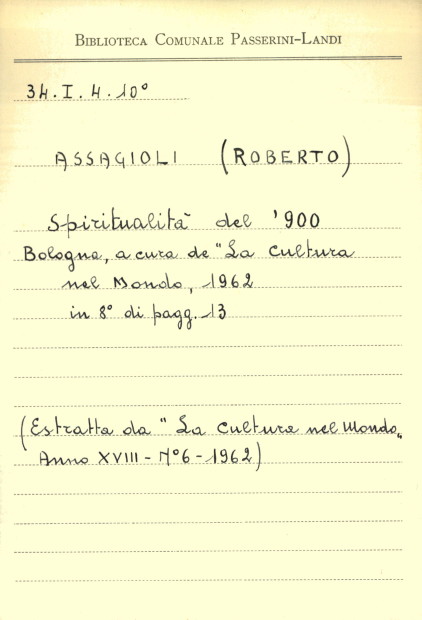 BIBLIOTECA COMUNALE PASSERINI-LANDI
34.I.4.10°
ASSAGIOLI (ROBERTO)
Spiritualità del '900
Bologna, a cura de "La Cultura
nel Mondo, 1962
in 8° di pagg. 13
(Estratta da "La Cultura nel Mondo„
Anno XVIII - N°6 - 1962)